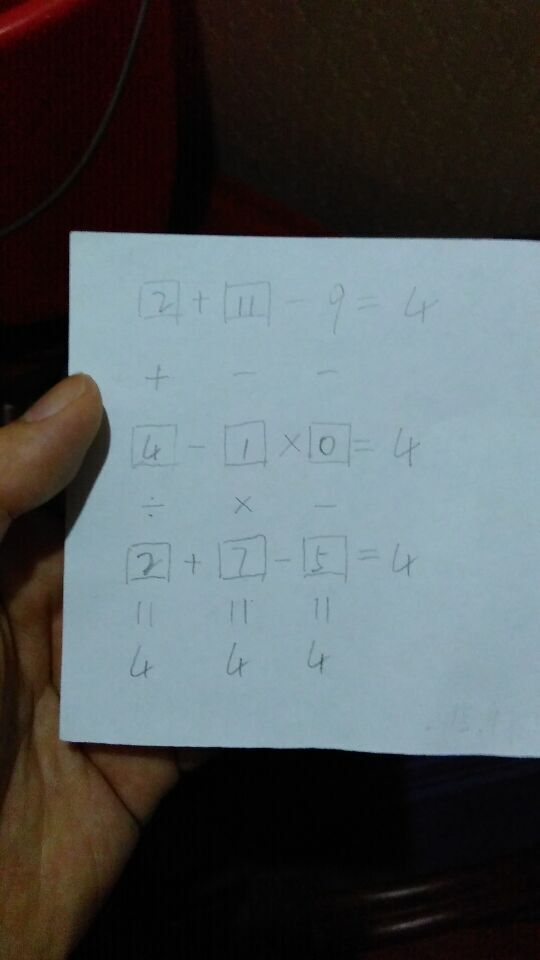 2 + 11 - 9 = 4
+ - -
4 - 1 × 0 = 4
÷ × -
2 + 7 - 5 = 4
|| || ||
4 4 4